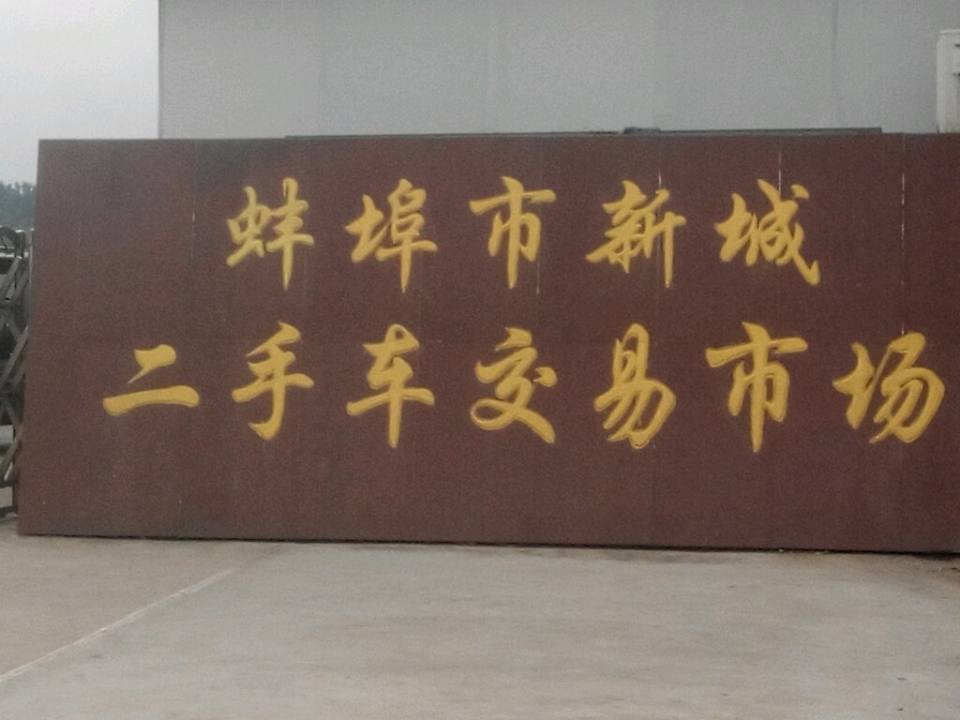 蚌埠市新城
二手车交易市场